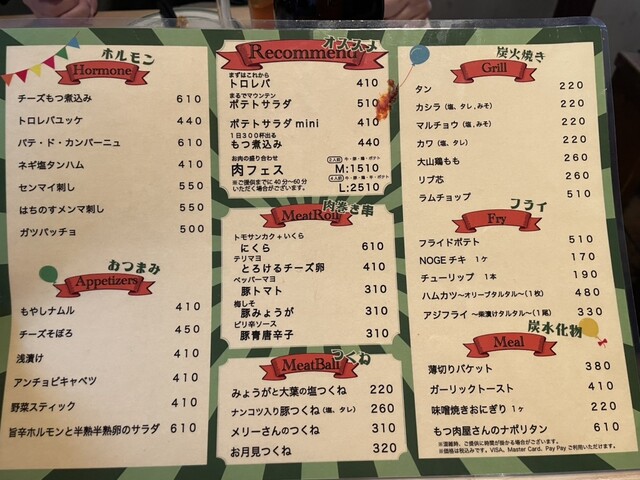 ホルモン
Hormone
チーズもつ煮込み 610
トロレバユッケ 440
パテ・ド・カンパーニュ 610
ネギ塩タンハム 410
センマイ刺し 550
はちのすメンマ刺し 550
ガツパッチョ 500
おつまみ
Appetizers
もやしナムル 410
チーズそぼろ 450
浅漬け 410
アンチョビキャベツ 410
野菜スティック 410
旨辛ホルモンと半熟半熟卵のサラダ 610
オススメ
Recommend
まずはこれから
トロレバ 410
まるでマウンテン
ポテトサラダ 510
ポテトサラダ mini 410
1日300杯出る
もつ煮込み 440
お肉の盛り合わせ
肉フェス M:1510
※ご提供までに40分〜60分
いただく場合がございます。 L:2510
肉巻き串
MeatRoll
トモサンカク+いくら
にくら 610
テリマヨ
とろけるチーズ卵 410
ペッパーマヨ
豚トマト 310
梅しそ
豚みょうが 310
ピリ辛ソース
豚青唐辛子 310
つくね
MeatBall
みょうがと大葉の塩つくね 220
ナンコツ入り豚つくね(塩、タレ) 260
メリーさんのつくね 310
お月見つくね 320
炭火焼き
Grill
タン 220
カシラ(塩、タレ、みそ) 220
マルチョウ(塩、みそ) 220
カワ(塩、タレ) 220
大山鶏もも 260
リブ芯 260
ラムチョップ 510
フライ
Fry
フライドポテト 510
NOGEチキ 1ヶ 170
チューリップ 1本 190
ハムカツ〜オリーブタルタル〜(1枚) 480
アジフライ 〜柴漬けタルタル〜(1尾) 330
炭水化物
Meal
薄切りバケット 380
ガーリックトースト 410
味噌焼きおにぎり 1ヶ 220
もつ肉屋さんのナポリタン 610
※混雑時、ご提供に時間が掛かる場合がございます。
※価格は税込みです。VISA、Master Card、Pay Pay ご利用いただけます。